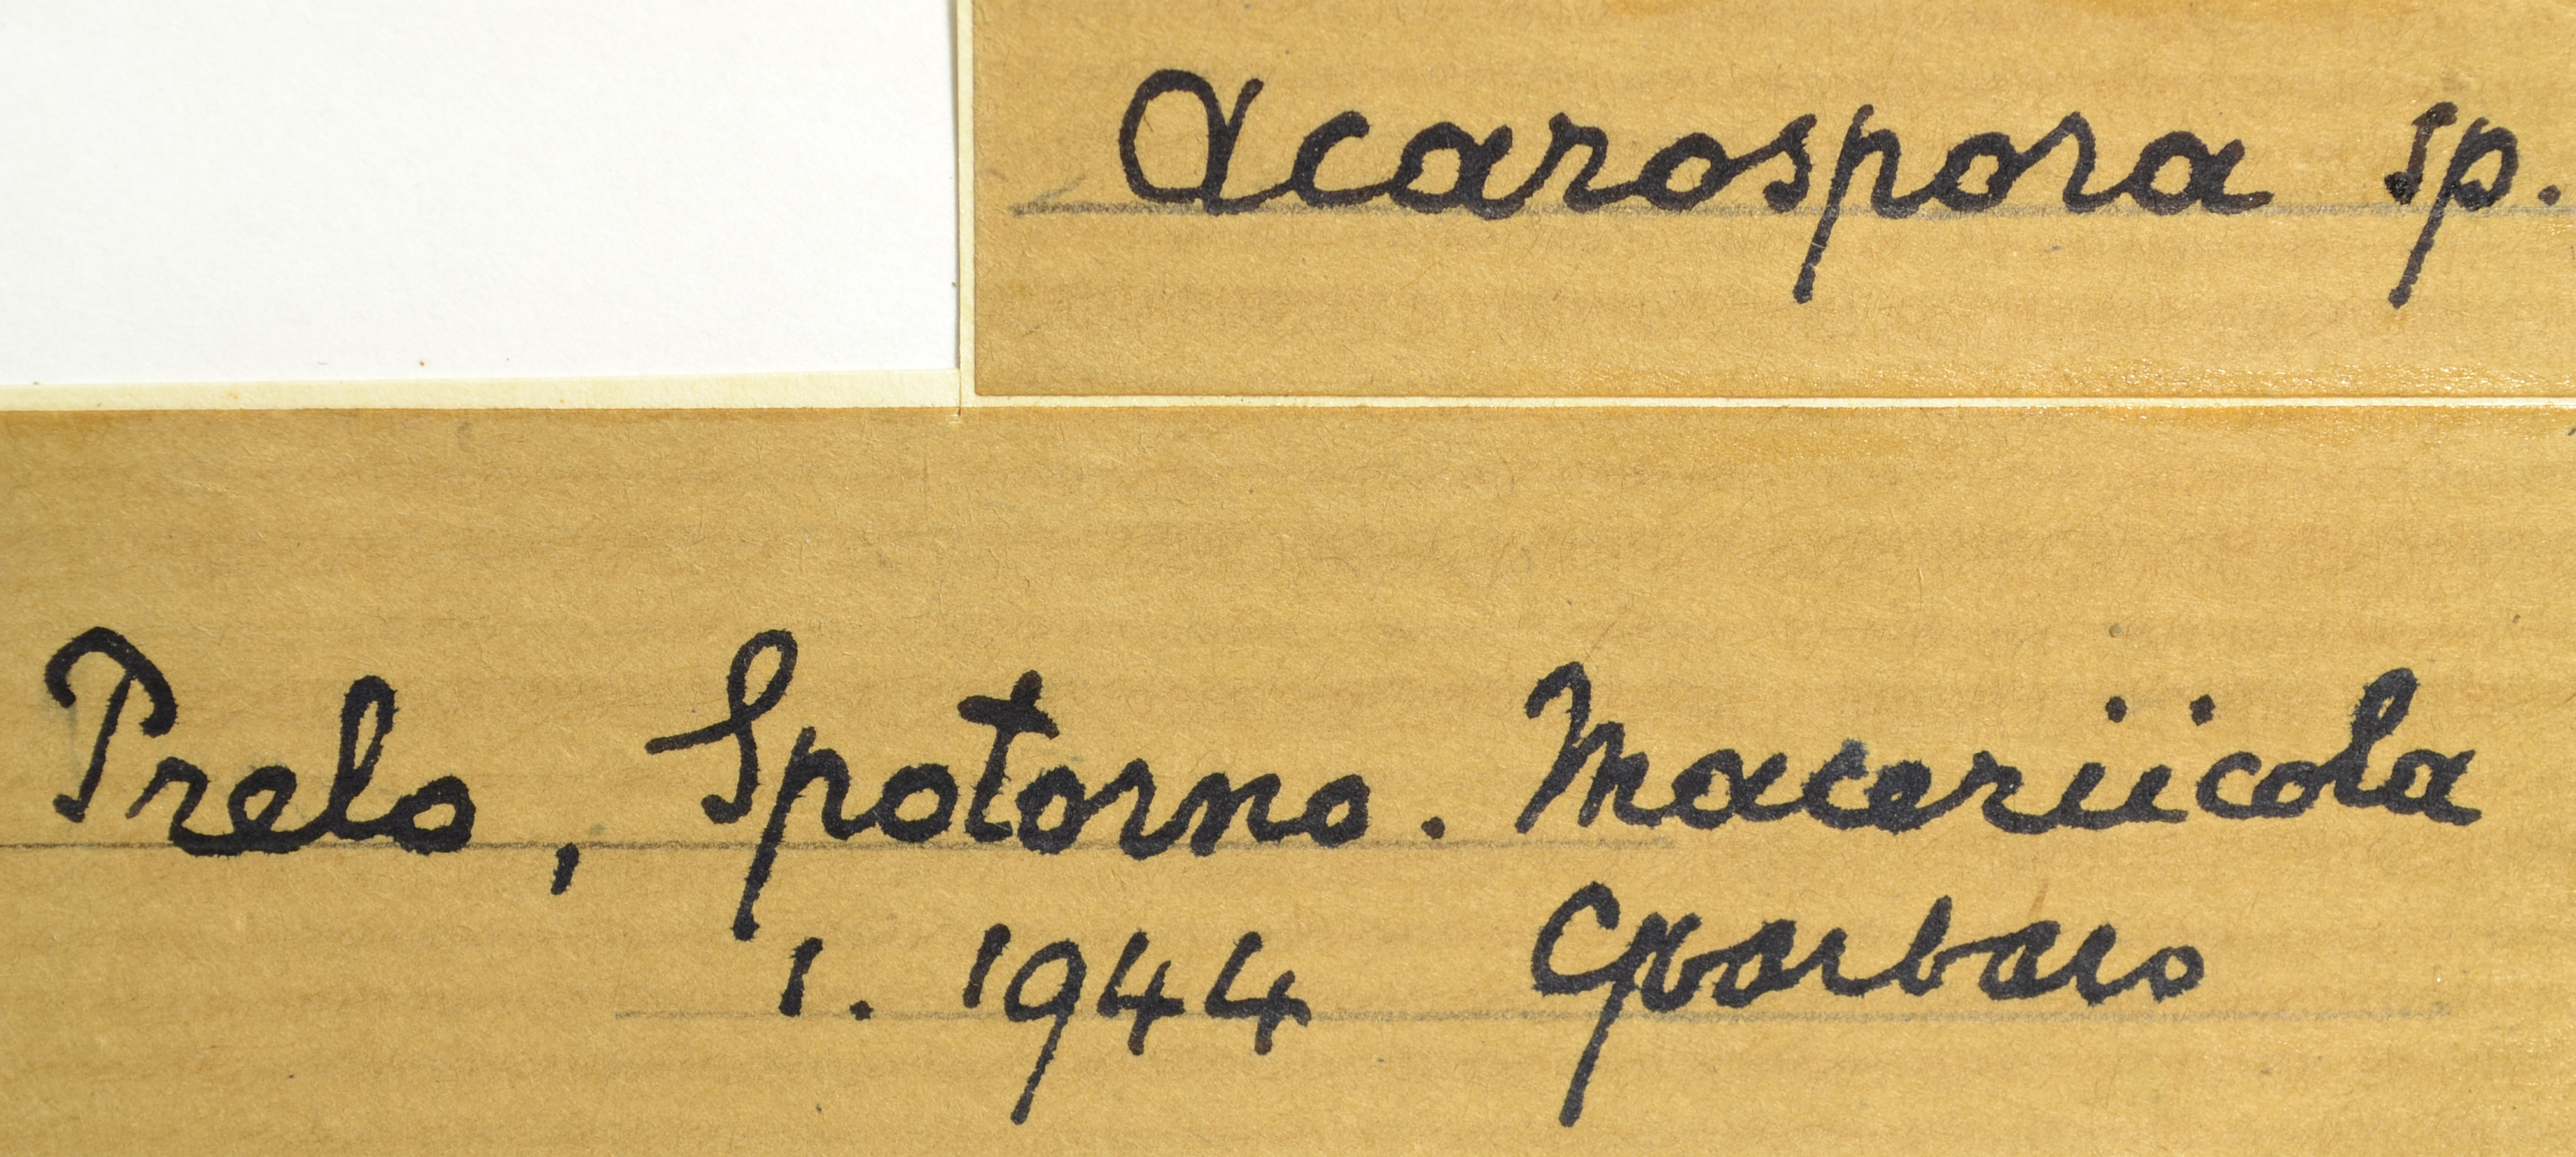 Acarospora sp.
Prelo, Spotorno. Maceriicola
1. 1944 Gsbarbaro